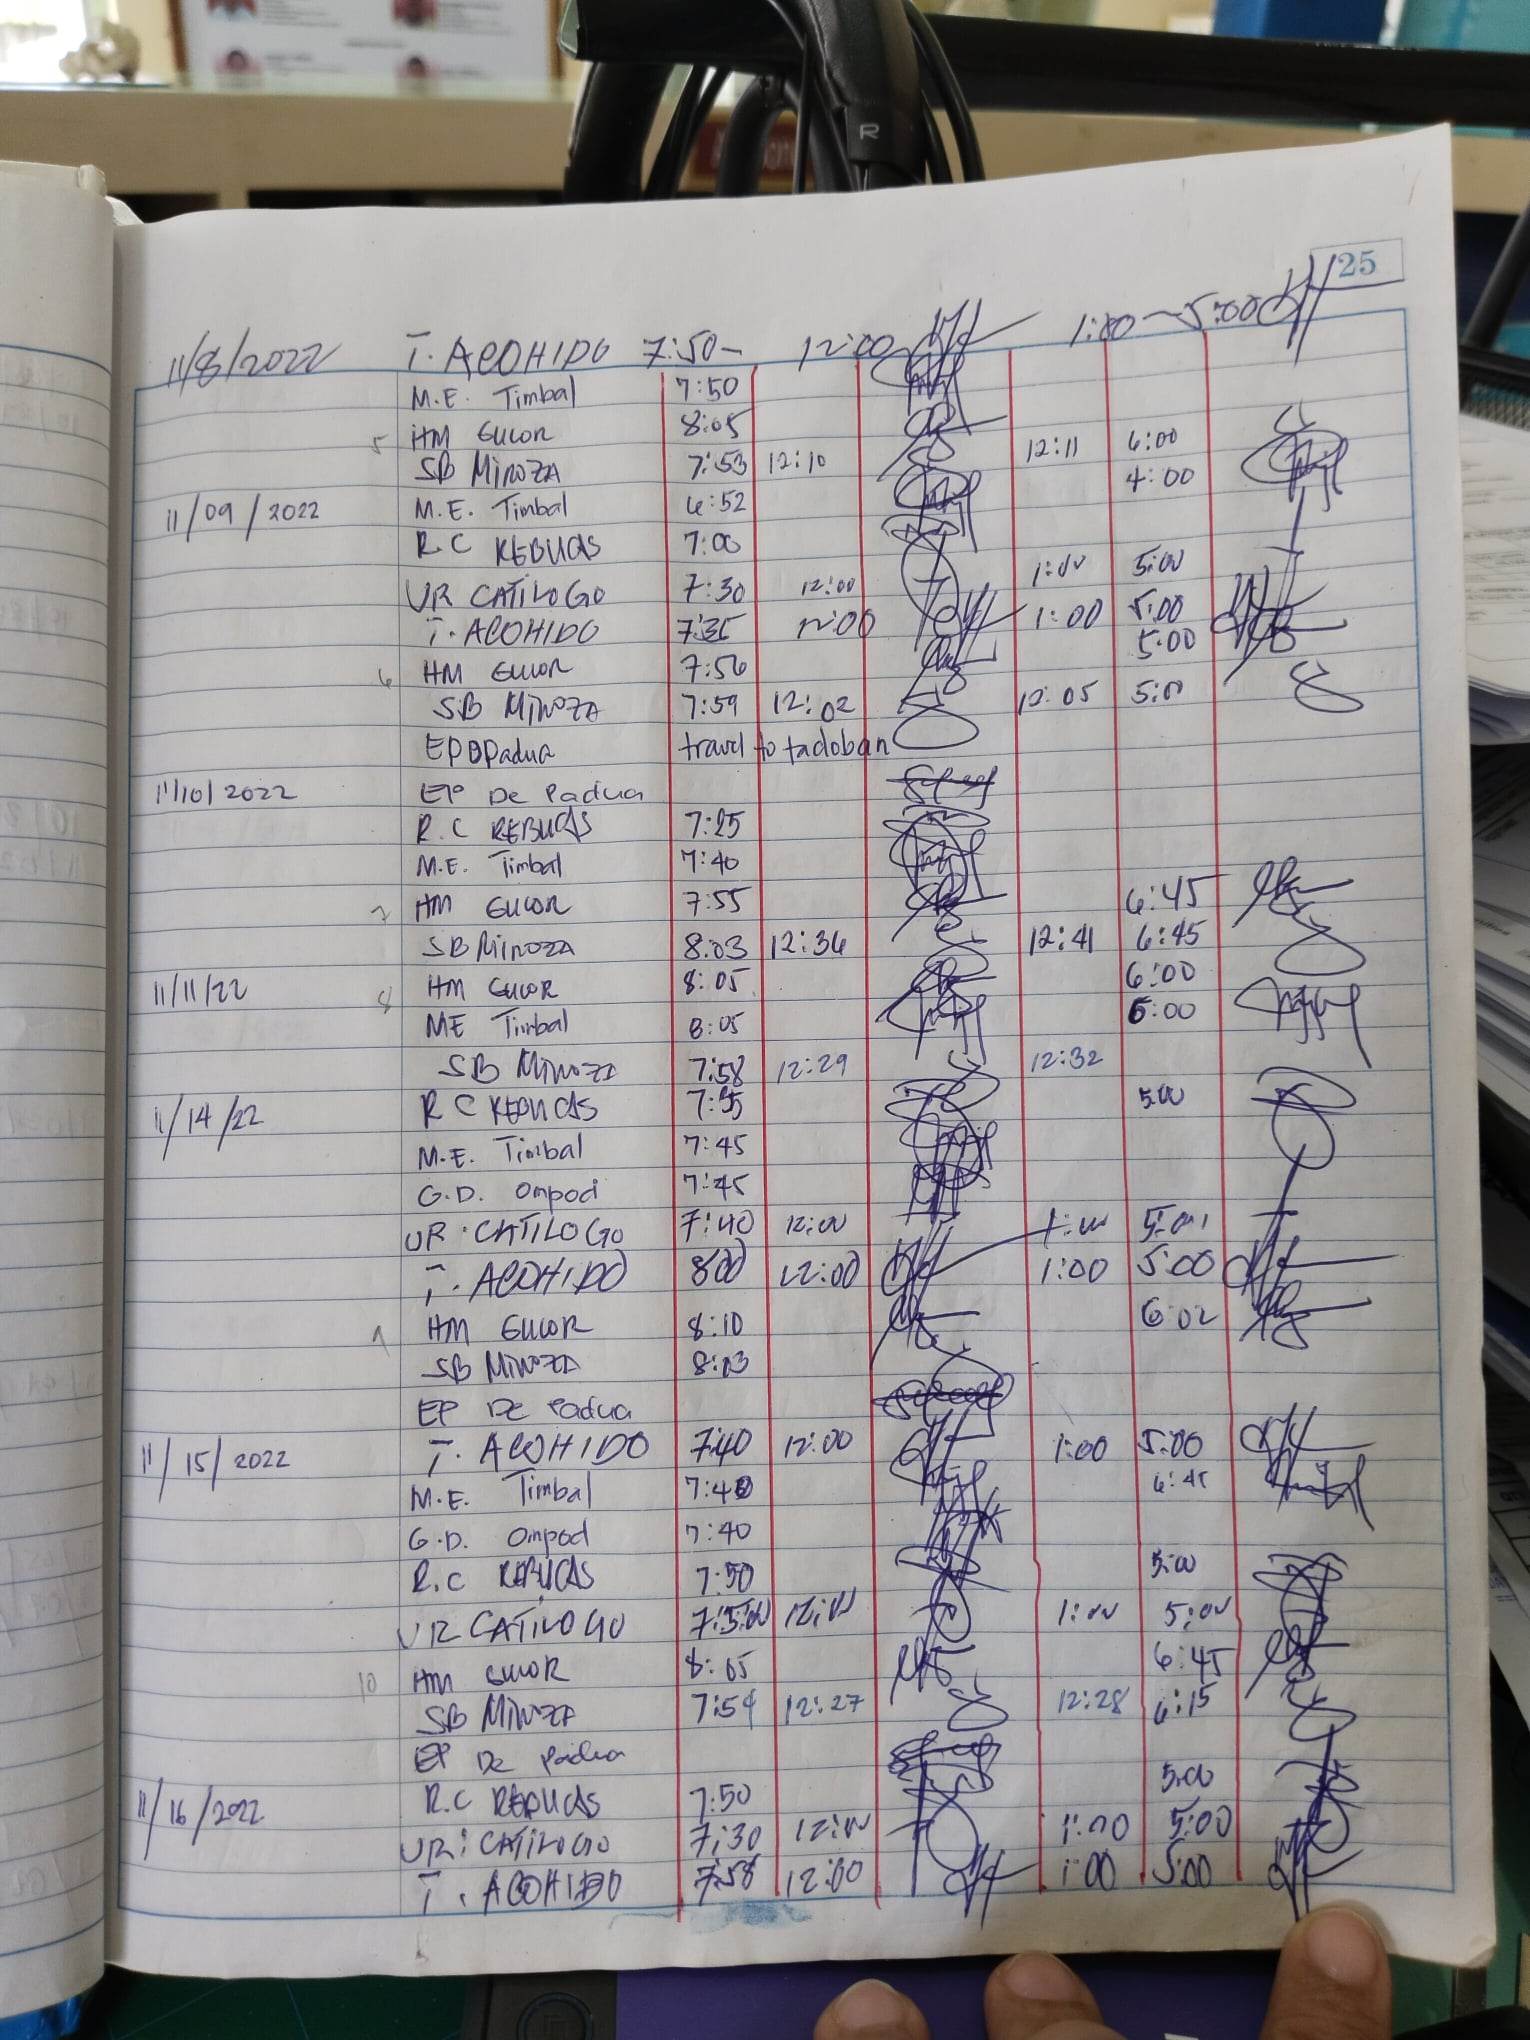 R
25
11/8/2022 T. ACOHIDO 7:50- 12:00 1:00 - 5:00
M.E. Timbal 7:50
5 HM 8:05 12:11 6:00
SB MINOZA 7:53 12:10 4:00
11/09/2022 M.E. Timbal 6:52
R.C REBUCAS 7:00
UR CATILOGO 7:30 12:00 1:00 5:00
T. ACOHIDO 7:35 12:00 1:00 5:00
6 HM 7:56 5:00
SB MINOZA 7:59 12:02 12:05 5:00
EPDPadua travel to tacloban
11/10/2022 EP De Padua
R.C REBUCAS 7:25
M.E. Timbal 7:40
7 HM 7:55 6:45
SB MINOZA 8:03 12:36 12:41 6:45
11/11/22 8 HM 8:05 6:00
ME Timbal 8:05 5:00
SB MINOZA 7:58 12:29 12:32
11/14/22 R C REBUCAS 5:00
M.E. Timbal 7:45
G.D. Ompod 7:45
UR. CATILOGO 7:40 12:00 1:00 5:00
T. ACOHIDO 800 12:00 1:00 5:00
9 HM 8:10 6:02
SB MINOZA 8:03
EP De Padua
11/15/2022 T. ACOHIDO 7:40 12:00 1:00 5:00
M.E. Timbal 7:40 6:45
G.D. Ompod 7:40
R.C REBUCAS 7:50 5:00
UR CATILOGO 12:00 1:00 5:00
10 HM 8:05 6:45
SB MINOZA 7:54 12:27 12:28 6:15
EP De Padua
11/16/2022 R.C REBUCAS 7:50 5:00
UR. CATILOGO 7:30 12:00 1:00 5:00
T. ACOHIDO 7:58 12:00 1:00 5:00